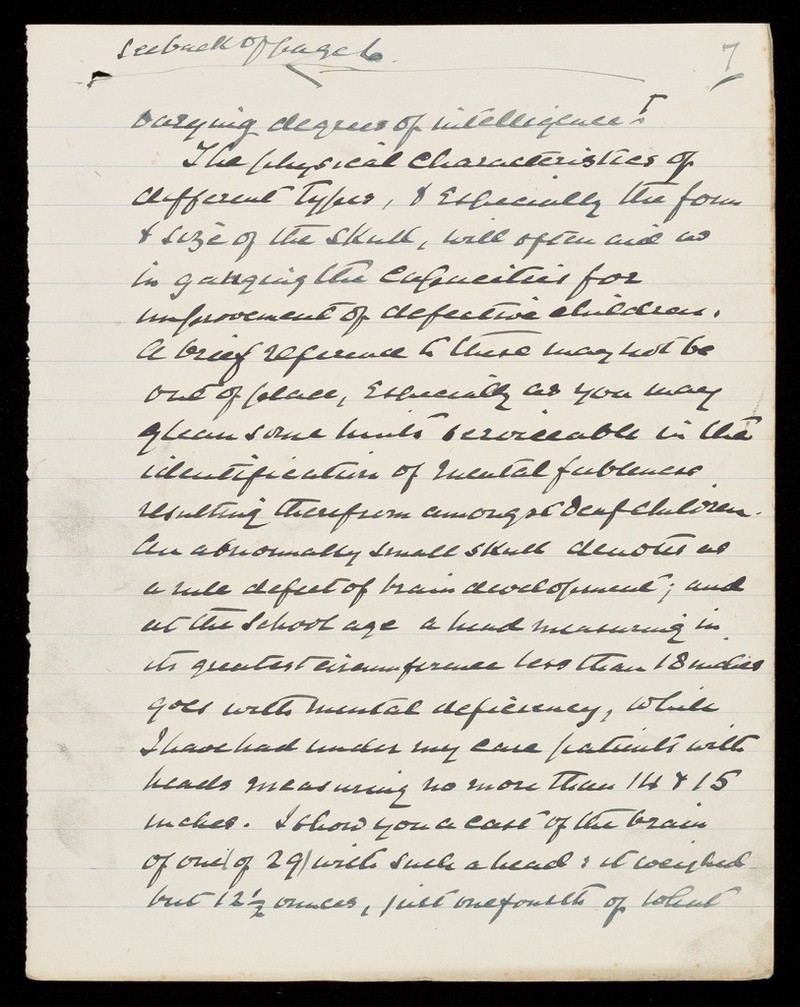 See back of page 6.
7
varying degrees of intelligence.
The physical characteristics of
different types, & especially the form
& size of the skull, will often aid us
in gauging the capacities for
improvement of defective children.
A brief reference to these may not be
out of place, especially as you may
glean some hints serviceable in the
identification of mental feebleness
resulting therefrom amongst deaf children.
An abnormally small skull denotes as
a rule defect of brain development; and
at the school age a head measuring in
its greatest circumference less than 18 inches
goes with mental deficiency, while
I have had under my care patients with
heads measuring no more than 14 & 15
inches. I show you a cast of the brain
of one (of 29) with such a head: it weighed
but 12½ ounces, just one fourth of what